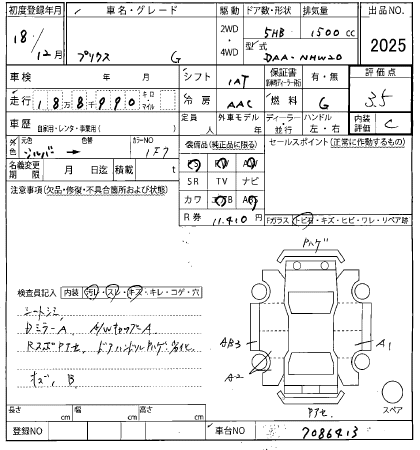 初度登録年月 車名・グレード 駆動 ドア数・形状 排気量 出品NO.
18/12月 プリウス G 2WD・4WD 5HB 1500 CC 2025
型式 DAA-NHW20
車検 年 月 シフト IAT 保証書 有・無 評価点
走行 18万8千990 キロ マイル 冷房 AAC 燃料 G 3.5
車歴 自家用・レンタ・事業用( ) 定員 人 外車モデル 年 ディーラー・並行 ハンドル 左・右 内装評価 C
外色 元色 シルバー 色替 カラーNO 1F7 装備品(純正品に限る) セールスポイント(正常に作動するもの)
名義変更期限 月 日迄 積載 t SR TV ナビ
注意事項(欠品・修復・不具合箇所および状態) カワ AB
R券 11,410 円 Fガラス トビ石・キズ・ヒビ・ワレ・リペア跡
ハゲ
検査員記入 内装 汚レ・スレ・キズ・キレ・コゲ・穴
シートシミ
DミラーA A/WキャップA
RスポアセA ドアハンドルハゲ・劣化
キズ、B
AB3
A2
A1
アセ
スペア
長さ cm 幅 cm 高さ cm
登録NO 車台NO 7086413